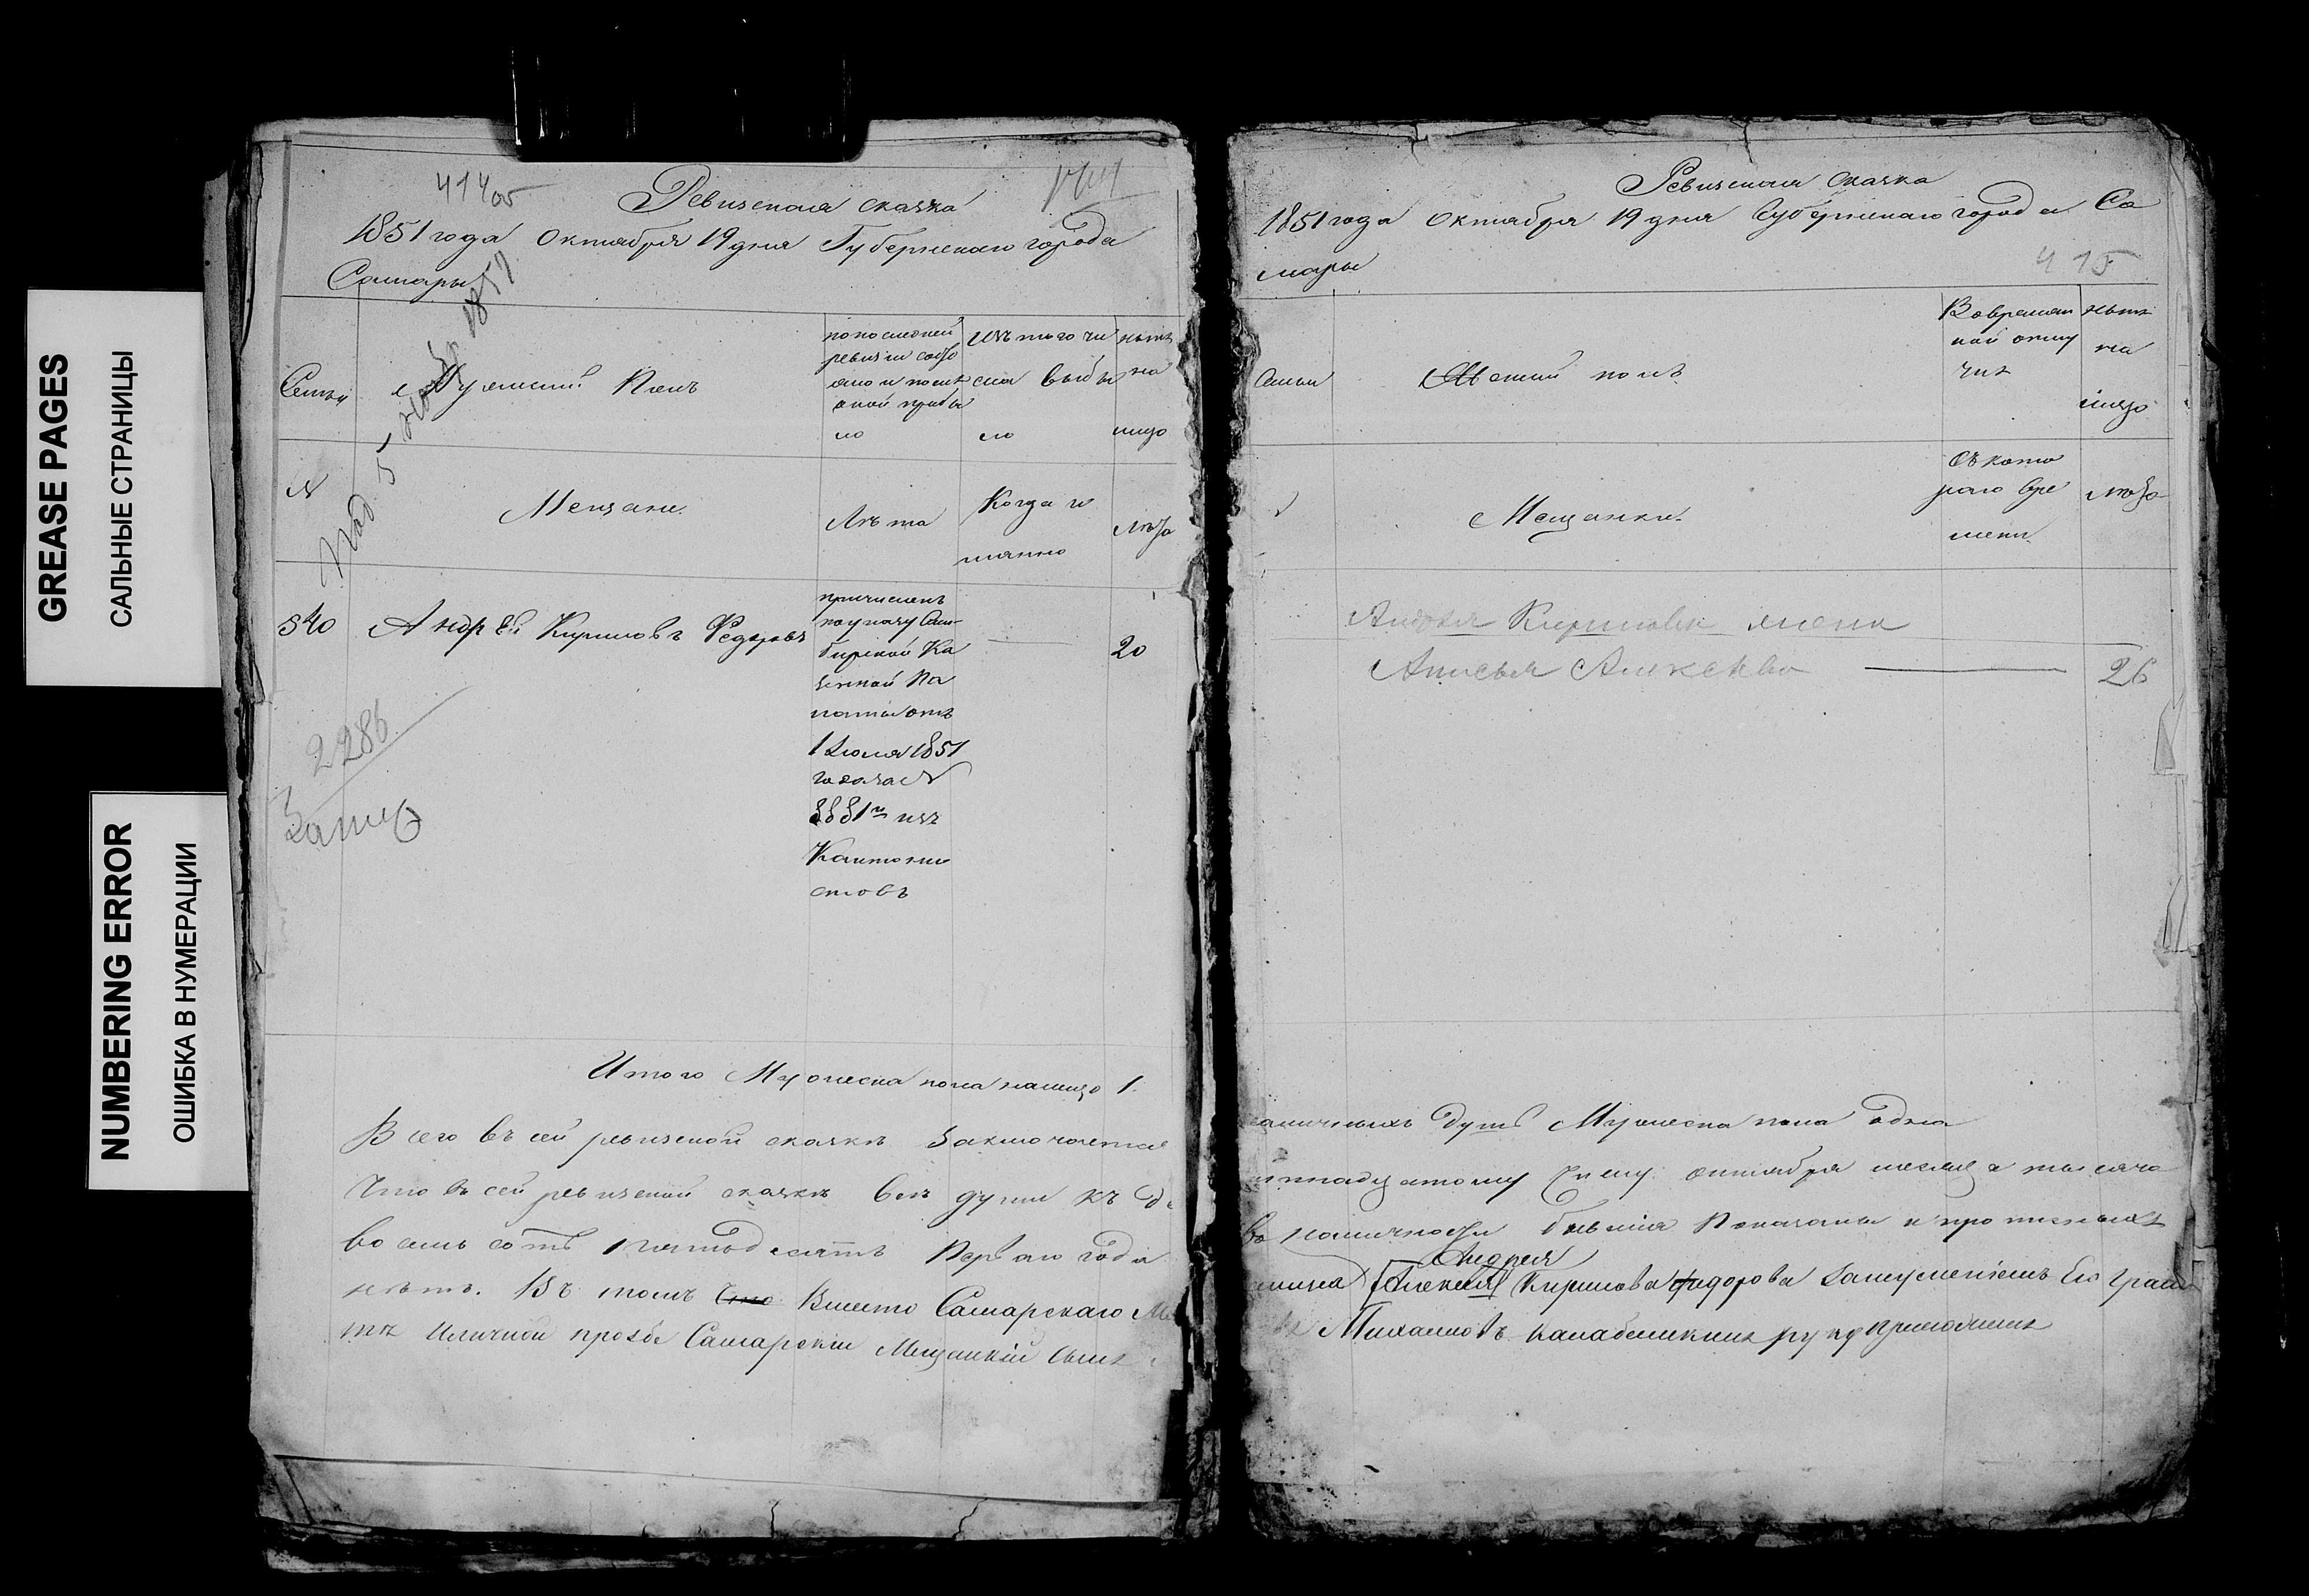 GREASE PAGES
САЛЬНЫЕ СТРАНИЦЫ
NUMBERING ERROR
ОШИБКА В НУМЕРАЦИИ
414об
Ревизская сказка
1851 года Октября 19 дня Губернскаго города
Самары
Под. 5 Ноябр 1851
Семьи
Мужеский Полъ
по последней
ревизіи состо
яло и после
оной прибы
ло
Изъ того чи
сла выбы
ло
ныне
на
лицо
N
Мещане.
Лѣта
Когда и
имянно
Лѣта
540
Андрей Кириловъ Федоровъ
причисленъ
по указу Сим
бирской Ка
зенной Па
латы отъ
1 Іюля 1851
года за N
8881м изъ
Кантони
стовъ
20
2286
Итого Мужеска пола налицо 1.
Всего въ сей ревизской сказкѣ заключается
Что въ сей ревизской сказкѣ всѣ души къ де
восемь сотъ пятьдесятъ Перваго года
нѣтъ. Въ томъ что Вместо Самарскаго Ме
и личной прозбе Самарскій Мещанскій сынъ
Ревизская сказка
1851 года Октября 19 дня Губернскаго города Са
мары
415
Семьи
Женский полъ
Во времян
ной отлу
чке
ныне
на
лицо
Мещанки.
Съ кото
раго вре
мени
Лѣта
Андрея Кирилова жена
Анисья Алексѣва
26
наличныхъ душъ Мужеска пола одна
вятнадцатому числу октября месяца тысяча
во наличности бывшія Показаны и прописныхъ
Андрея
щанина Алексея Кирилова Федорова за неумениемъ Его Грам
Михаиловъ руку приложилъ